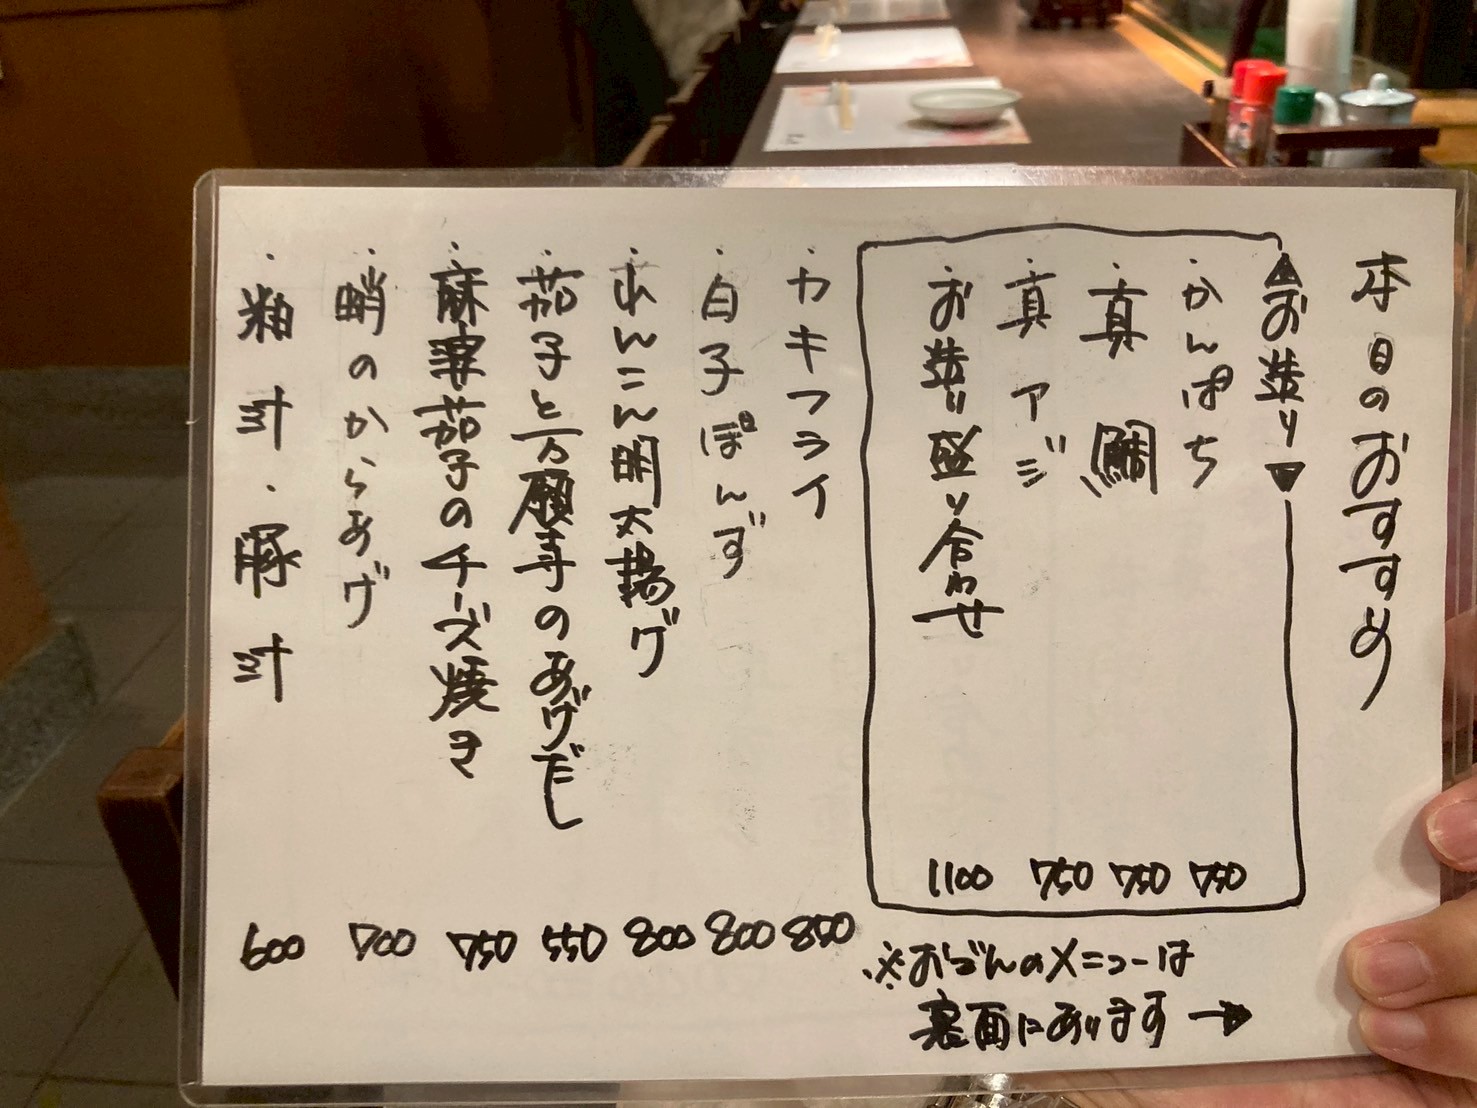 本日のおすすめ
▲お造り▼
・かんぱち 750
・真鯛 750
・真アジ 750
・お造り盛り合わせ 1100
・カキフライ 850
・白子ぽんず 800
・れんこん明太揚げ 800
・茄子と万願寺のあげだし 550
・麻婆茄子のチーズ焼き 750
・鮹のからあげ 700
・粕汁・豚汁 600
※おでんのメニューは
裏面にあります→